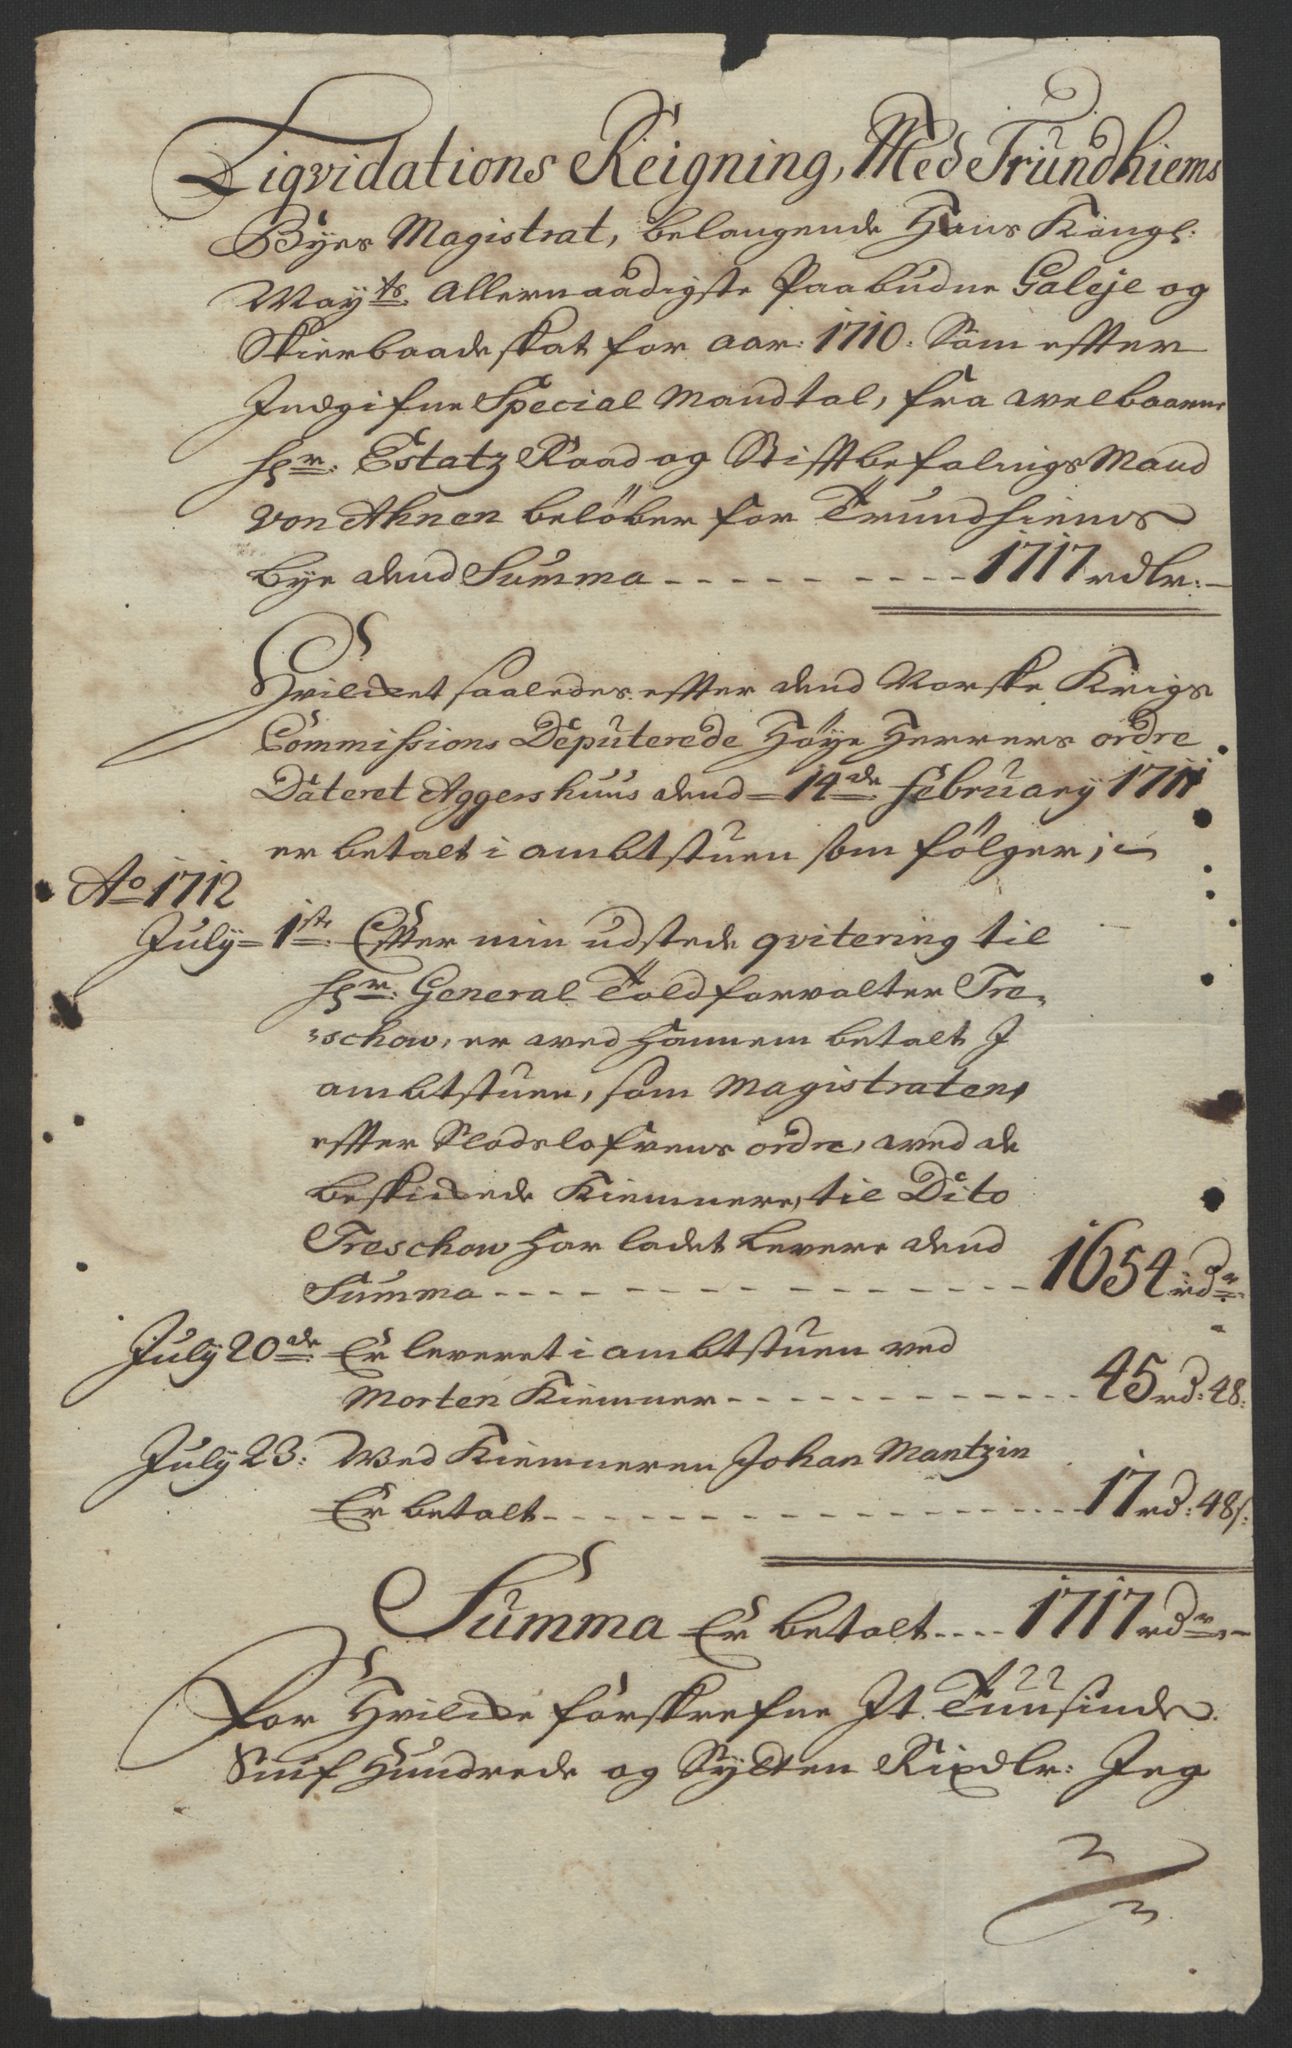 Liqvidations Reigning, Med Trundhiems
Byes Magistrat, belangende Hans Kongl:
May:ts Allernaadigste Paabudne Galeje og
Skierbaadeskat for aar: 1710: Som effter
Indgifne Special Mandtal, fra welbaarne
Hr: Estatz Raad og Stifftbefalnigs Mand
von Ahnen beløber for Trundhiems
bye dend Summa - - - - - - - - - - 1717 rdlr: -
Hvilcket saaledes effter dend Norske Krigs
Commissions Deputerede Høye Herrers ordre
Dateret Aggershuus dend = 14de February 1711
er betalt i ambtstuen som følger;
Ao 1712
July = 1ste Effter min udstede qvitering til
Hr: General Toldforvalter Tre-
schow, er wed hannem betalt J
ambtstuen, som Magistraten,
effter Slodslofvens ordre, wed de
beskickede Kiemnere, til Dito
Treschow har ladet levere dend
Summa - - - - - - - - - - 1654 rdr
July 20de Er leveret i ambtstuen ved
Morten Kiemner - - - - - - - - - - 45 rd: 48:
July 23: Wed Kiemneren Johan Mantzin
Er betalt - - - - - - - - - - 17 rd: 48s:
Summa Er betalt - - - - 1717 rdr: -
For Hvilcke forskrefne Jt Tuusinde
Siuf Hundrede og Sytten Rixdlr: Jeg